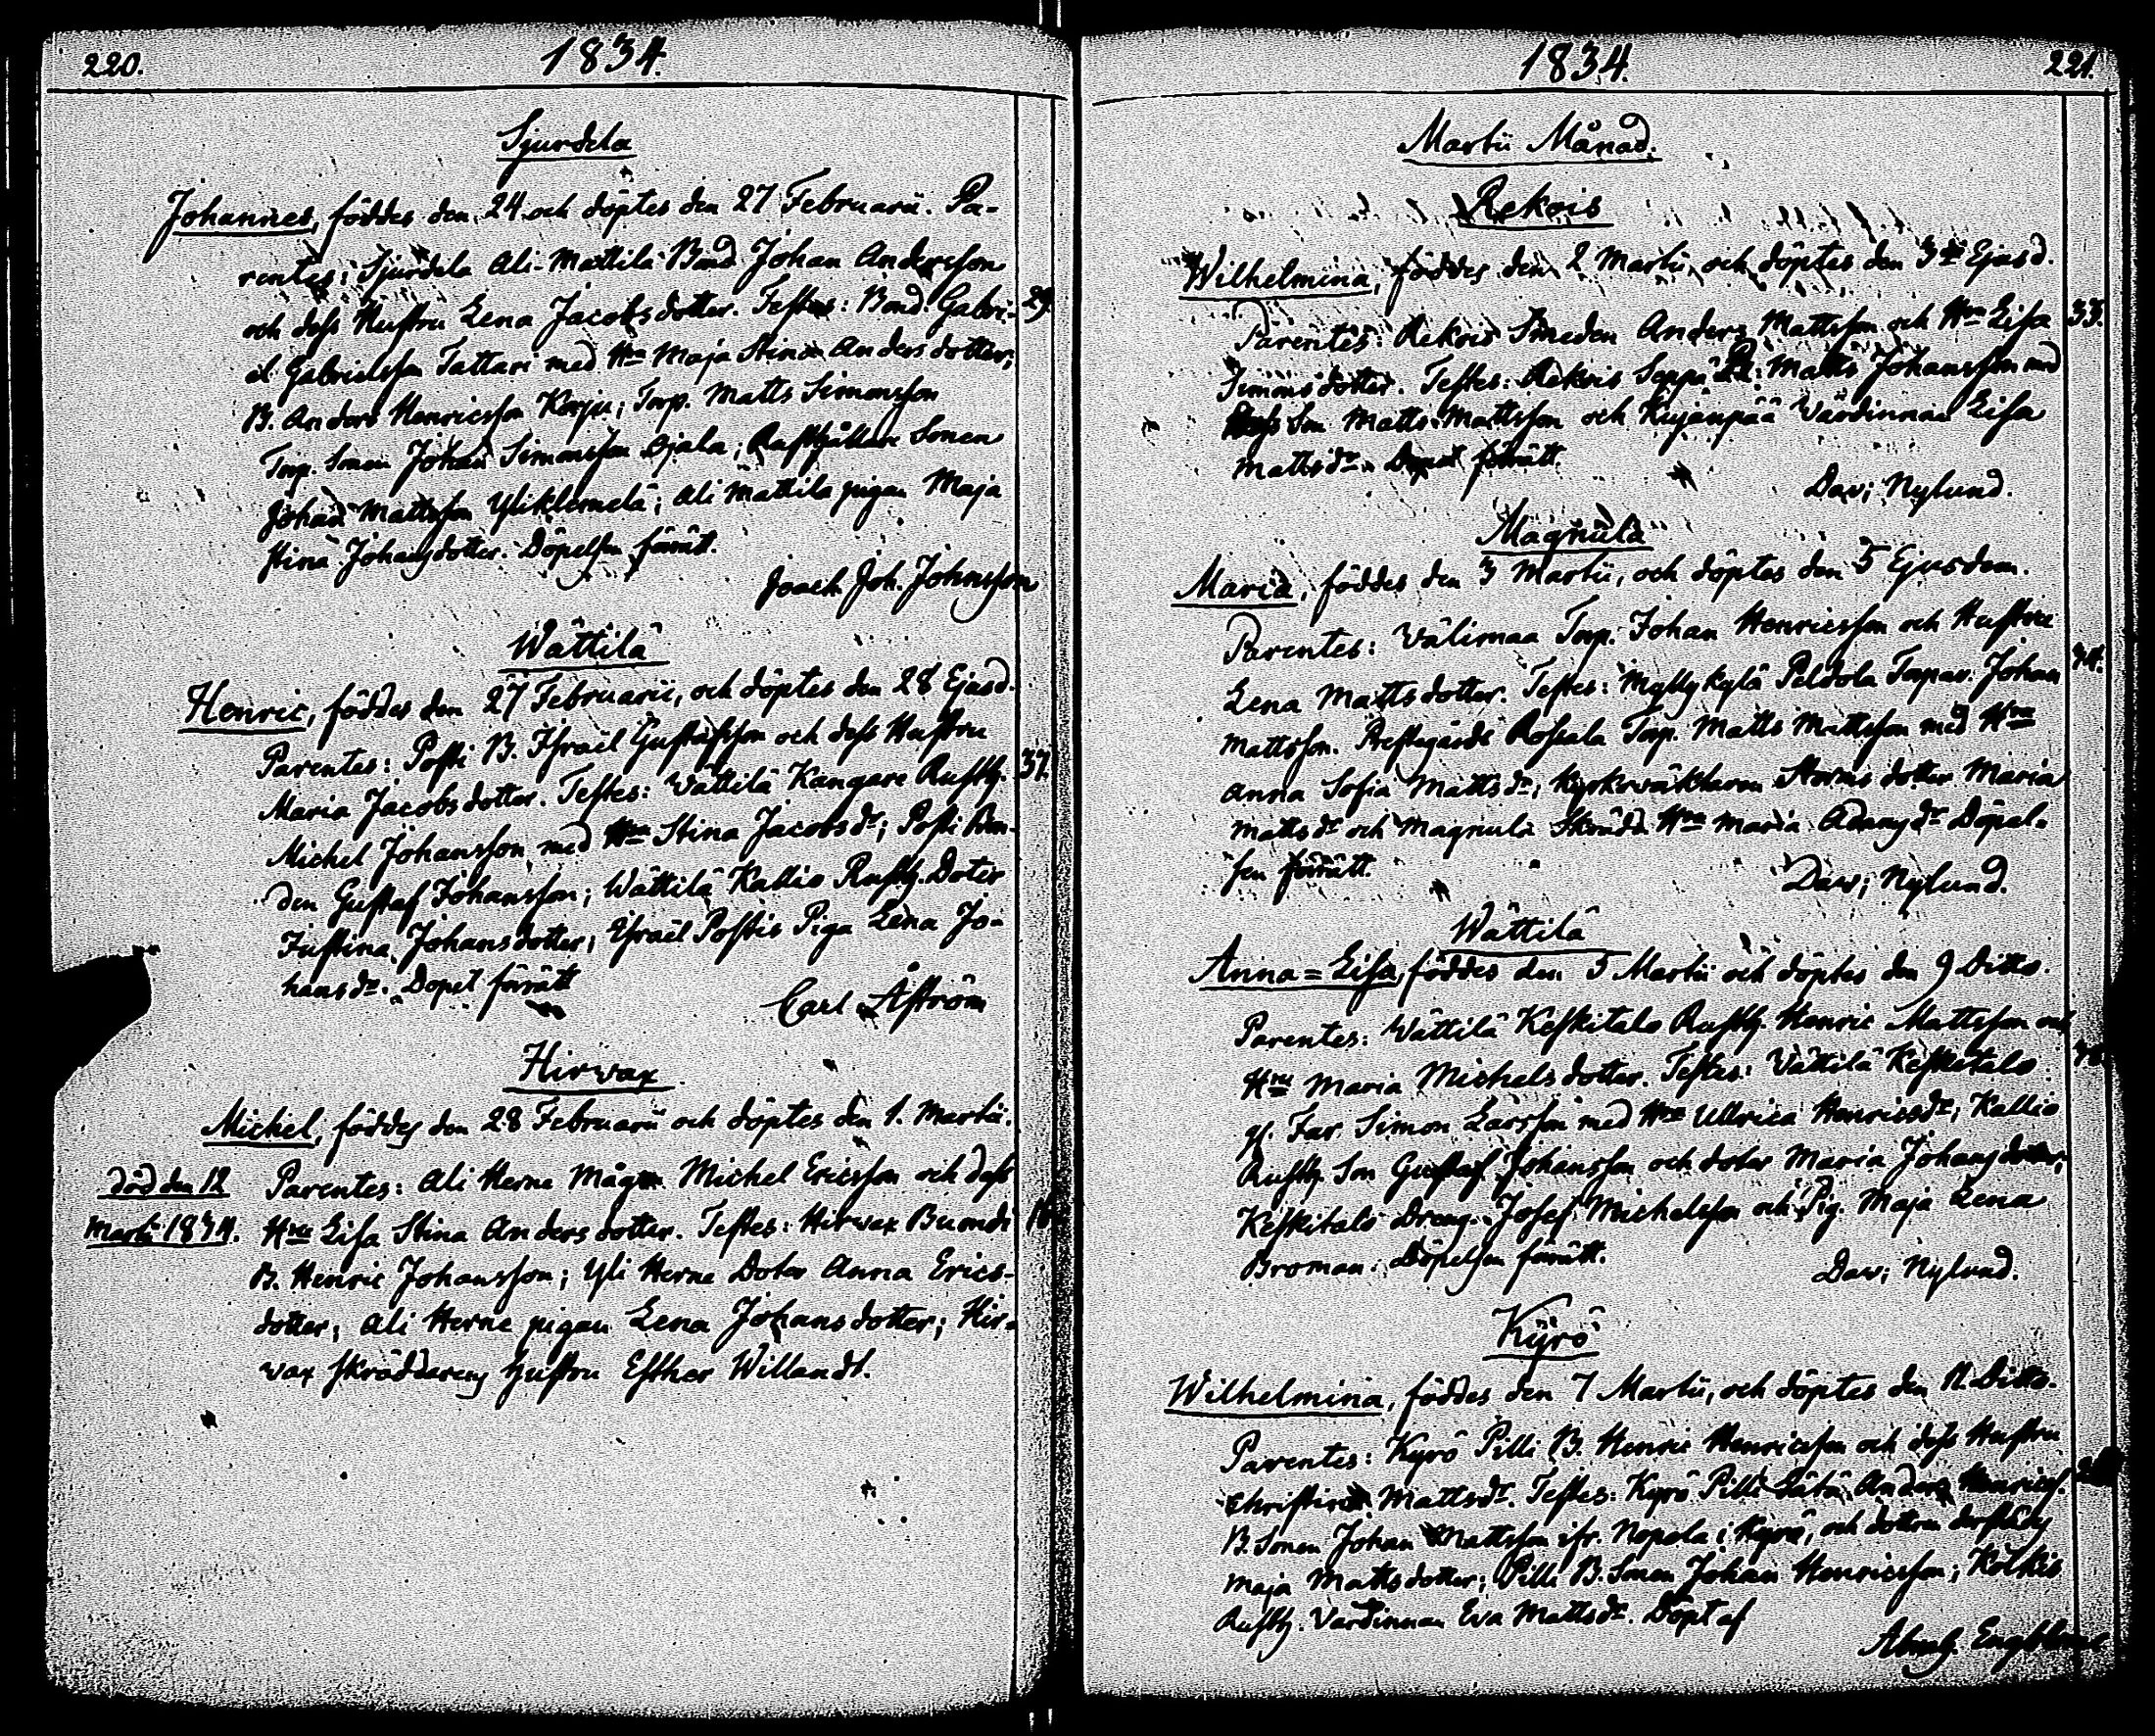 220.
1834.
Sjurdela
Johannes, föddes den 24 och döptes den 27 Februarii. Pa-
rentes: Sjurdela Ali-Mattila Bond Johan Andersson
och dess Hustru Lena Jacobsdotter. Testes: Bond. Gabri- 29.
el Gabrielsson Tattari med Hru Maja Stina Andersdotter;
B. Anders Henricsson Korju; Torp. Matts Simonsson
Torp. Sonen Johan Simonsson Ojala; Rusthållare Sonen
Johan Mattsson Yliklemelä; Ali Mattila pigan Maja
Stina Johansdotter. Döpelsen förrätt.
Joach. Joh. Johnsson
Wättilä
Henric, föddes den 27 Februarii, och döptes den 28 Ejusd.
Parentes: Posti B. Israël Gustafsson och dess Hustru
Maria Jacobsdotter. Testes: Wättilä Kangare Rusth. 37.
Michel Johansson med Hru Stina Jacobsdr; Posti Bon-
den Gustaf Johansson; Wättilä Kallio Rusth. Doter
Justina Johansdotter; Israël Postis Piga Lena Jo-
hansdr. Dopet förrätt
Carl Åström
Hirwax
Michel, föddes den 28 Februarii och döptes den 1. Martii.
död den 12 Parentes: Ali Herne Mågen Michel Ericsson och dess
Martii 1834. Hru Lisa Stina Andersdotter. Testes: Hirwax Buomdi
B. Henric Johansson; Yli Herne Doter Anna Erics-
dotter; Ali Herne pigan Lena Johansdotter; Hir-
wax skräddarens hustru Esther Willandt.
1834.
221.
Martii Månad.
Rekois
Wilhelmina, föddes den 2 Martii och döptes den 3de Ejusd.
Parentes: Rekois Smeden Anders Mattsson och Hru Lisa 33.
Simonsdotter. Testes: Rekois Seppä Matts Johansson med
dess Son Matts Mattsson och Kujanpää Värdinnan Lisa
Mattsdr. Dopet förrätt.
Dav; Nylund.
Magnula
Maria, föddes den 3 Martii, och döptes den 5 Ejusdem.
Parentes: Välimaa Torp. Johan Henricsson och Hustru
Lena Mattsdotter. Testes: Myllykylä Peldola Torpar. Johan
Mattsson. Prestgårds Rossala Torp. Matts Mattsson med Hru
Anna Sofia Mattsdr; Kyrkoväktaren Storms dotter Maria
Mattsdr och Magnula Skrädd. Hru Maria Adamsdr Döpel-
sen förrätt.
Dav; Nylund.
Wättilä
Anna=Lisa, föddes den 5 Martii och döptes den 9 Ditto.
Parentes: Wättilä Keskitalo Rusth. Henric Mattsson och
Hru Maria Michelsdotter. Testes: Vättilä Keskitalo
gl. Far Simon Larsson med Hru Ullrica Henricsdr; Kallio
Rusth. Son Gustaf Johansson och doter Maria Johansdotter;
Keskitalo Dreng. Josef Michelsson och Pig. Maja Lena
Broman. Döpelsen förrätt.
Dav; Nylund.
Kyrö
Wilhelmina, föddes den 7 Martii, och döptes den 11. Ditto.
Parentes: Kyrö Pilli B. Henric Henricsson och dess Hustru
Christina Mattsdr. Testes: Kyrö Pilli Anders Henricss.
B. Sonen Johan Mattsson ifr. Nopola i Kyrö, och dottren dersstädes
Maja Mattsdotter; Pilli B. Sonen Johan Henricsson; Kölkis
Rusth. Värdinnan Eva Mattsdr. Döpt af